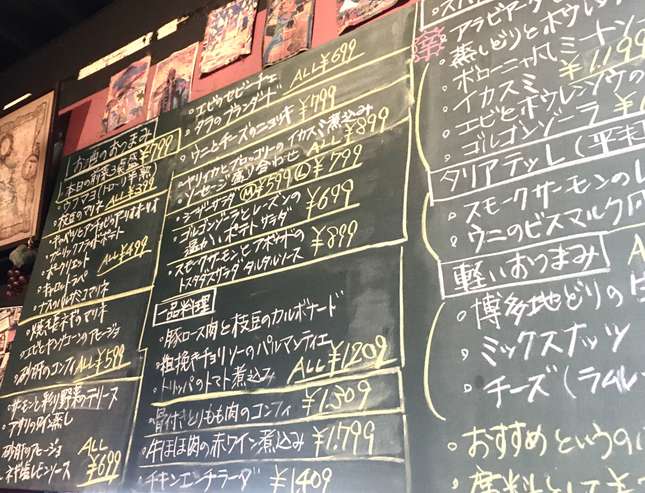 お酒のおつまみ
本日の前菜3点盛 ¥799
ウフマヨ(トロ〜リ半熟)
枝豆のマリネ ALL¥399
キャベツとアンチョビ
ガーリックフライドポテト
キャロットラペ ALL¥499
焼きネギのマリネ
エビとキノコのアヒージョ
砂肝のコンフィ ALL¥599
サーモンと彩り野菜のテリーヌ
アサリのワイン蒸し
砂肝のアヒージョ
ネギ塩レモンソース
ALL ¥699
エビのセビーチェ
タラのブランダード ALL¥699
ウニとチーズのニョッキ ¥799
ヤリイカとブロッコリーのイカスミ煮込み
ソーセージ盛り合わせ ALL ¥899
シーザーサラダ Ⓜ¥599 Ⓛ¥799
ゴルゴンゾーラとレンズの
温かいポテトサラダ ¥699
スモークサーモンとアボカドの
トスタダスサラダ タルタルソース ¥899
一品料理
豚ロース肉と枝豆のカルボナード
粗挽きチョリソーのパルマンティエ
トリッパのトマト煮込み ALL¥1209
骨付きとりもも肉のコンフィ ¥1,309
牛ほほ肉の赤ワイン煮込み ¥1,799
チキンエンチラーダ ¥1409
アラビアータ
蒸しどりとホウレン
ボローニャ風ミートソー
イカスミ ¥1,199
エビとホウレンソウの
ゴルゴンゾーラ
タリアテッレ(平
スモークサーモンの
ウニのビスマルク風
軽いおつまみ
博多地どりの
ミックスナッツ
チーズ(ラムレ
おすすめというの
席料として¥